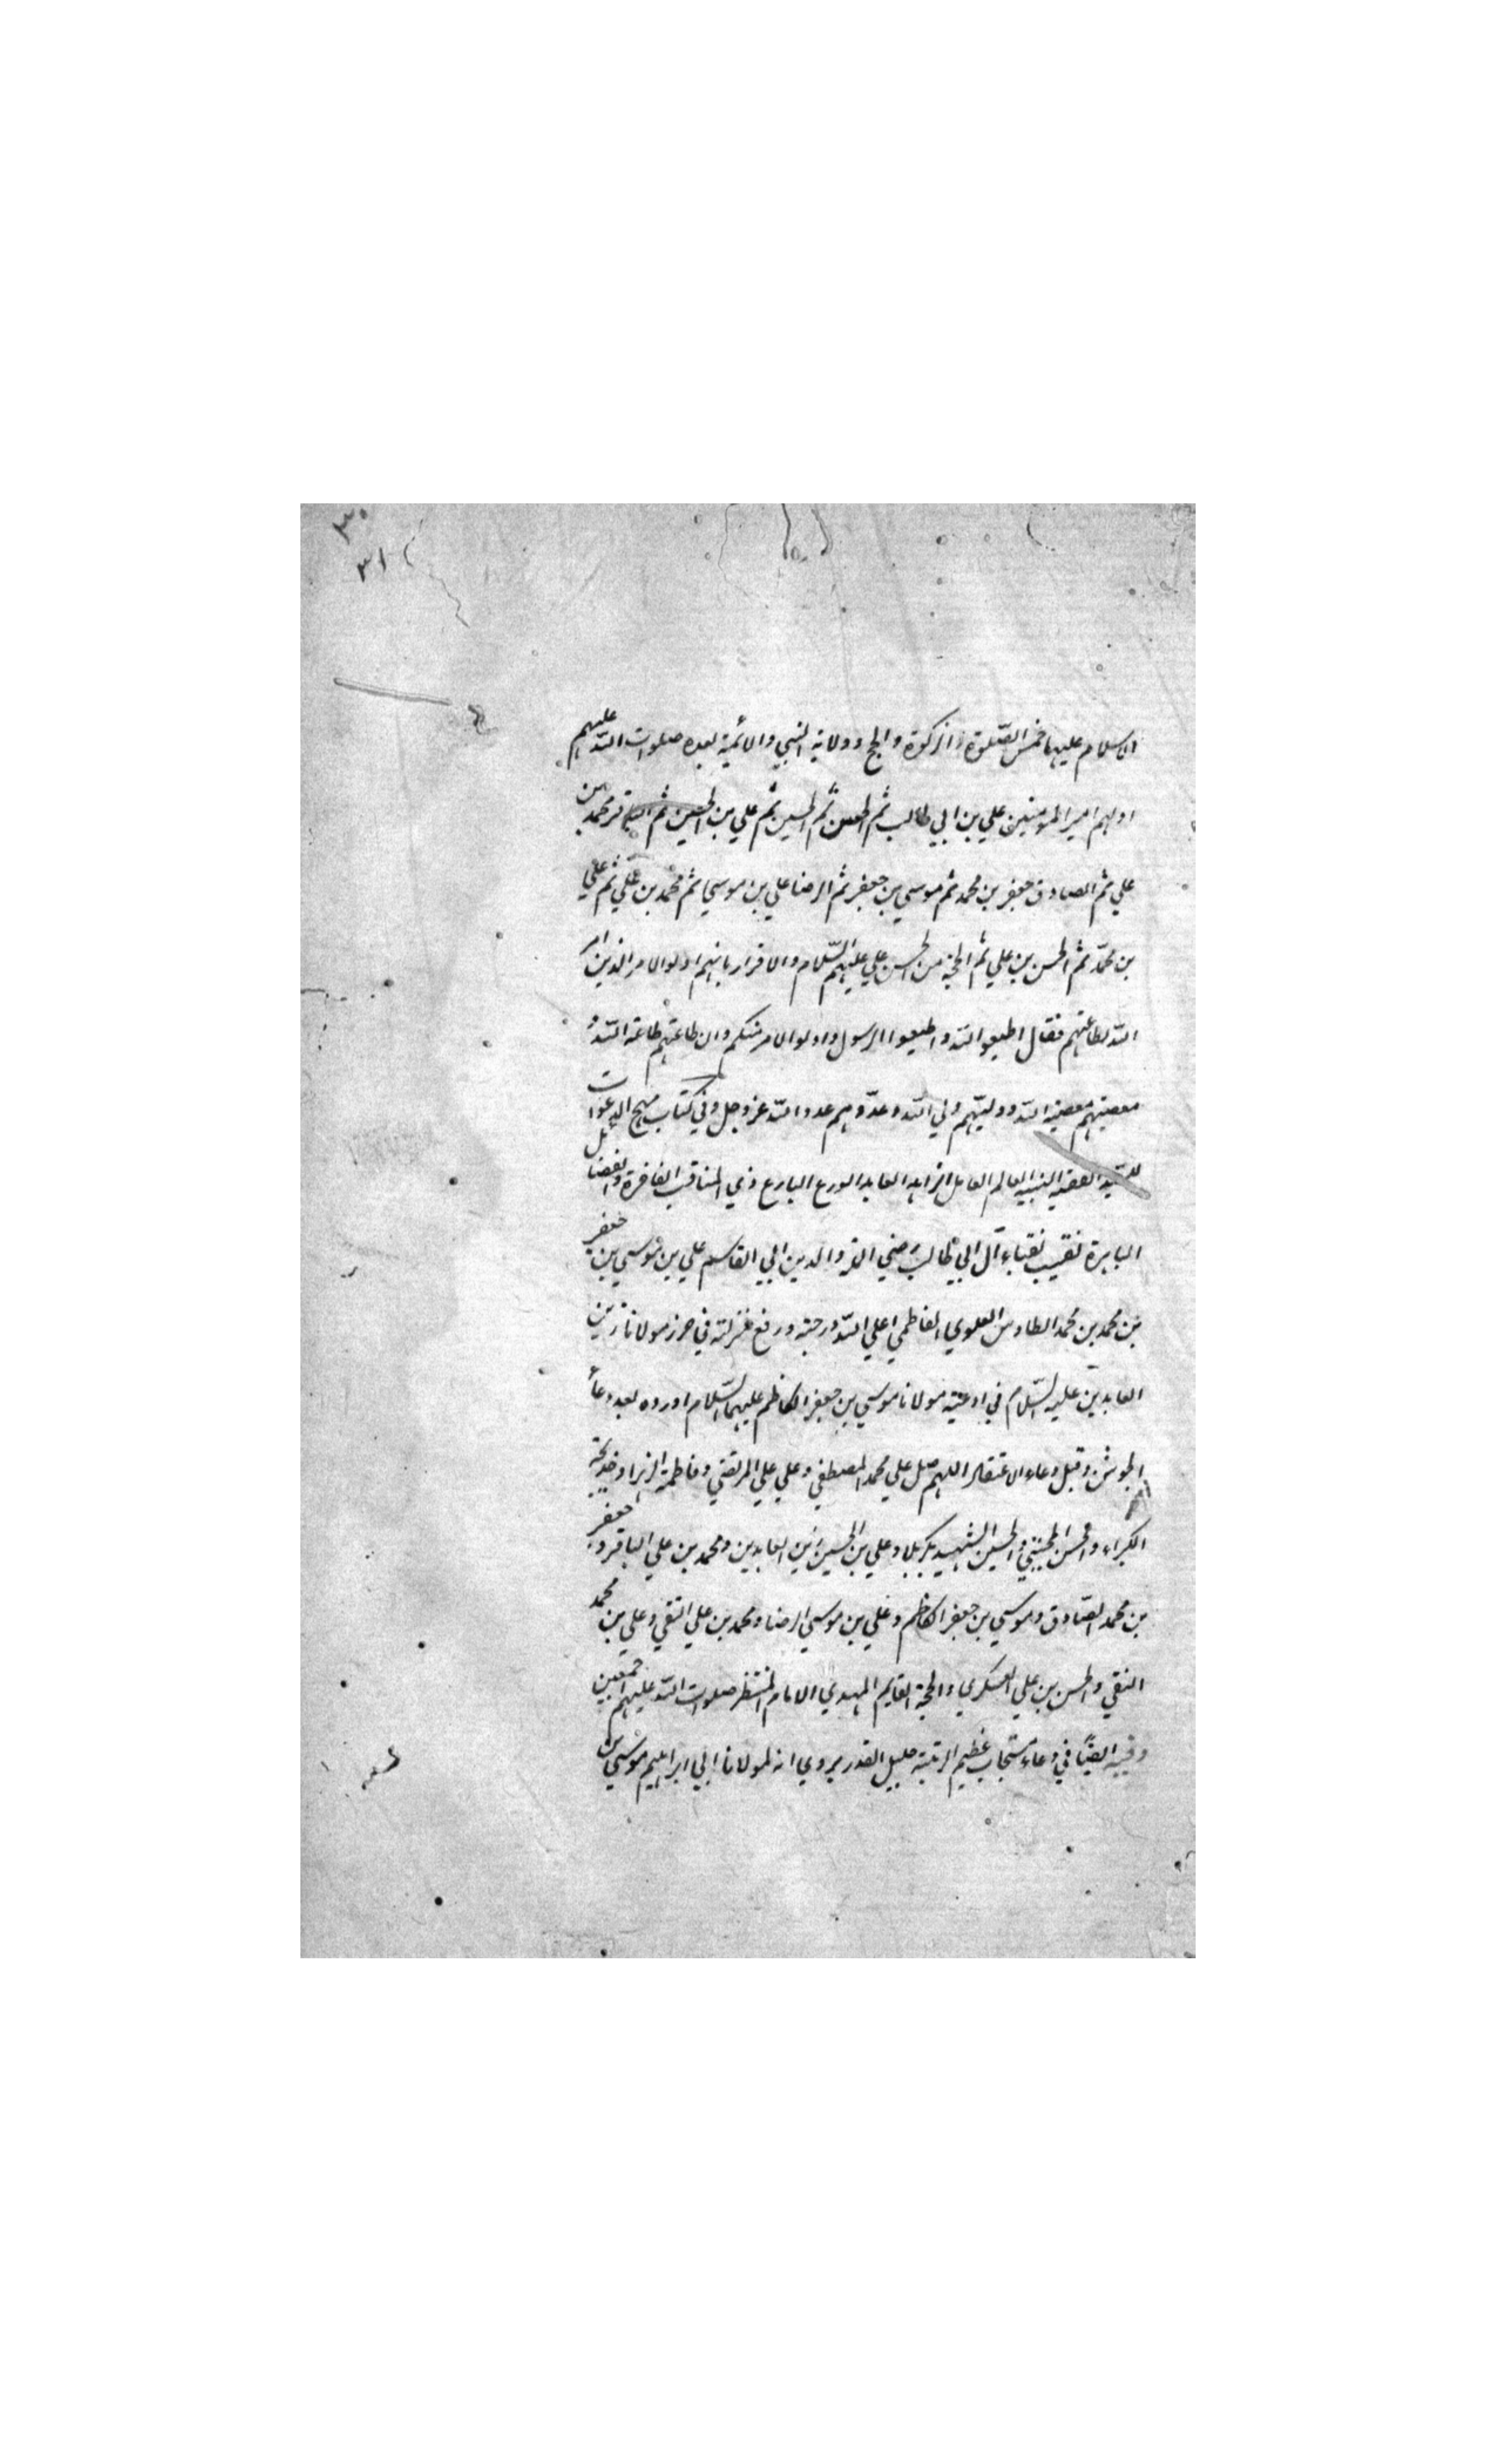 ٣٠
٣١
الاسلام عليها خمس الصّلوة والزكوة والحج وولاية النبي والائمة بعده صلوات اللّه عليهم
اولهم امير المؤمنين علي بن ابي طالب ثم الحسن ثم الحسين ثم علي بن الحسين ثم الباقر محمد بن
علي ثم الصادق جعفر بن محمد ثم موسي بن جعفر ثم الرضا علي بن موسي ثم محمد بن علي ثم علي
بن محمّد ثم الحسن بن علي ثم الحجة من الحسن علي عليهم السّلام والاقرار بانهم اولوالامر الذين امر
اللّه بطاعتهم فقال اطيعو اللّه واطيعوا الرسول واولوالامر منكم وان طاعتهم طاعة اللّه و
معصيتهم معصية اللّه ووليّهم ولي اللّه وعدّوهم عدو اللّه عز وجل وفي كتاب مهج الدعوات
للسّيد الفقيه النبيه العالم العامل الزاهد العابد الورع البارع ذي المناقب الفاخرة والفضائل
الباهرة نقيب نقباء آل ابي طالب رضي الملة والدين ابي القاسم علي بن موسي بن جعفر
بن محمد بن محمد الطاوس العلوي الفاطمي اعلي اللّه درجته ورفع منزلته في حرز مولانا زين
العابدين عليه السّلام في ادعية مولانا موسي بن جعفر الكاظم عليهما السّلام اورده بعد دعاء
الجوشن وقبل دعاء الاعتقاد اللهم صل علي محمد المصطفي وعلي علي المرتضي وفاطمة الزهرا وخديجة
الكبراء والحسن المجتبي والحسين الشهيد بكربلا وعلي بن الحسين زين العابدين ومحمد بن علي الباقر وجعفر
بن محمد الصّادق وموسي بن جعفر الكاظم وعلي بن موسي الرضا ومحمد بن علي التقي وعلي بن محمد
النقي والحسن بن علي العسكري والحجة القايم المهدي الامام المنتظر صلوات اللّه عليهم اجمعين
وفيه ايضًا في دعاء مستجاب عظيم الرتبة جليل القدر يروي انه لمولانا ابي ابراهيم موسي بن